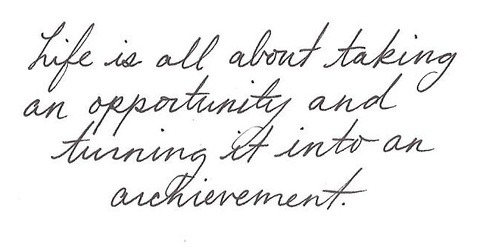 Life is all about taking
an opportunity and
turning it into an
archievement.